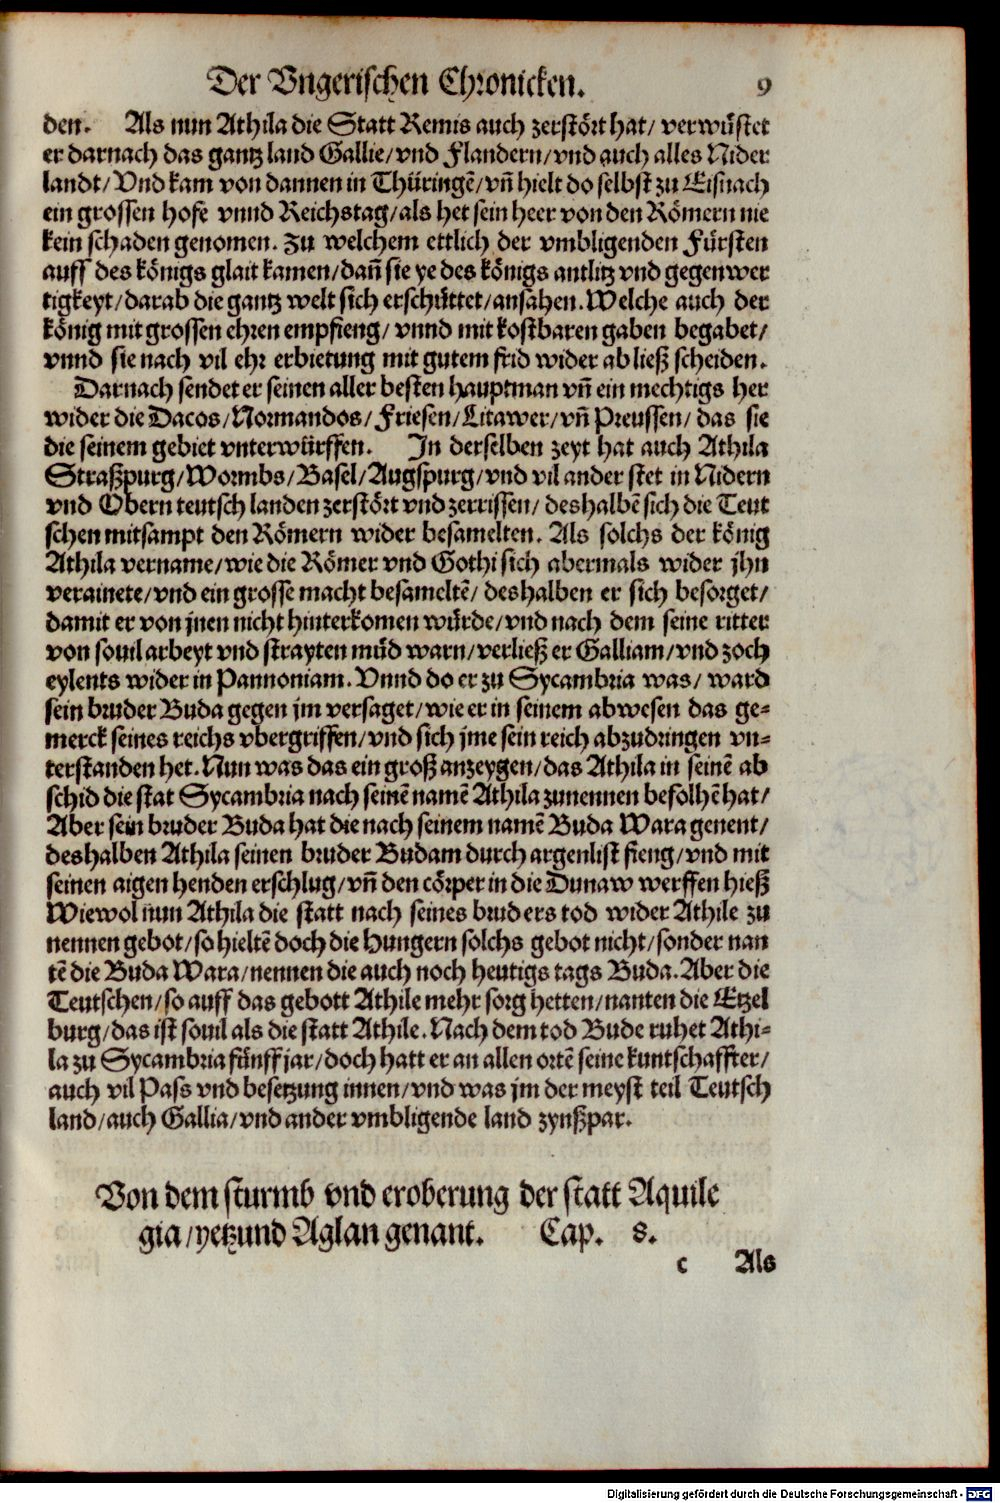 Der Vngerischen Chronicken. 9
den. Als nun Athila die Statt Remis auch zerstört hat/ verwüstet
er darnach das gantz land Gallie/ vnd Flandern/ vnd auch alles Nider
landt/ Vnd kam von dannen in Thüringē/ vñ hielt do selbst zu Eisnach
ein grossen hofe vnnd Reichstag/ als het sein heer von den Römern nie
kein schaden genomen. Zu welchem ettlich der vmbligenden Fürsten
auff des königs glait kamen/ dañ sie ye des königs antlitz vnd gegenwer
tigkeyt/ darab die gantz welt sich erschüttet/ ansahen. Welche auch der
könig mit grossen ehren empfieng/ vnnd mit kostbaren gaben begabet/
vnnd sie nach vil ehr erbietung mit gutem frid wider ab ließ scheiden.
Darnach sendet er seinen aller besten hauptman vñ ein mechtigs her
wider die Dacos/ Normandos/ Friesen/ Litawer/ vñ Preussen/ das sie
die seinem gebiet vnterwürffen. In derselben zeyt hat auch Athila
Straßpurg/ Wormbs/ Basel/ Augspurg/ vnd vil ander stet in Nidern
vnd Obern teutsch landen zerstört vnd zerrissen/ deshalbē sich die Teut
schen mitsampt den Römern wider besamelten. Als solchs der könig
Athila vername/ wie die Römer vnd Gothi sich abermals wider jhn
verainete/ vnd ein grosse macht besameltē/ deshalben er sich besorget/
damit er von jnen nicht hinterkomen würde/ vnd nach dem seine ritter
von souil arbeyt vnd strayten müd warn/ verließ er Galliam/ vnd zoch
eylents wider in Pannoniam. Vnnd do er zu Sycambria was/ ward
sein bruder Buda gegen jm versaget/ wie er in seinem abwesen das ge=
merck seines reichs vbergriffen/ vnd sich jme sein reich abzudringen vn=
terstanden het. Nun was das ein groß anzeygen/ das Athila in seinē ab
schid die stat Sycambria nach seinē namē Athila zunennen befolhē hat/
Aber sein bruder Buda hat die nach seinem namē Buda Wara genent/
deshalben Athila seinen bruder Budam durch argenlist fieng/ vnd mit
seinen aigen henden erschlug/ vñ den cörper in die Dunaw werffen hieß
Wiewol nun Athila die statt nach seines bruders tod wider Athile zu
nennen gebot/ so hieltē doch die Hungern solchs gebot nicht/ sonder nan
tē die Buda Wara/ nennen die auch noch heutigs tags Buda. Aber die
Teutschen/ so auff das gebott Athile mehr sorg hetten/ nanten die Etzel
burg/ das ist souil als die statt Athile. Nach dem tod Bude ruhet Athi=
la zu Sycambria fünff jar/ doch hatt er an allen ortē seine kuntschaffter/
auch vil Pass vnd besetzung innen/ vnd was jm der meyst teil Teutsch
land/ auch Gallia/ vnd ander vmbligende land zynßpar.
Von dem sturmb vnd eroberung der statt Aquile
gia/ yetzund Aglan genant. Cap. 8.
c Als
Digitalisierung gefördert durch die Deutsche Forschungsgemeinschaft - DFG